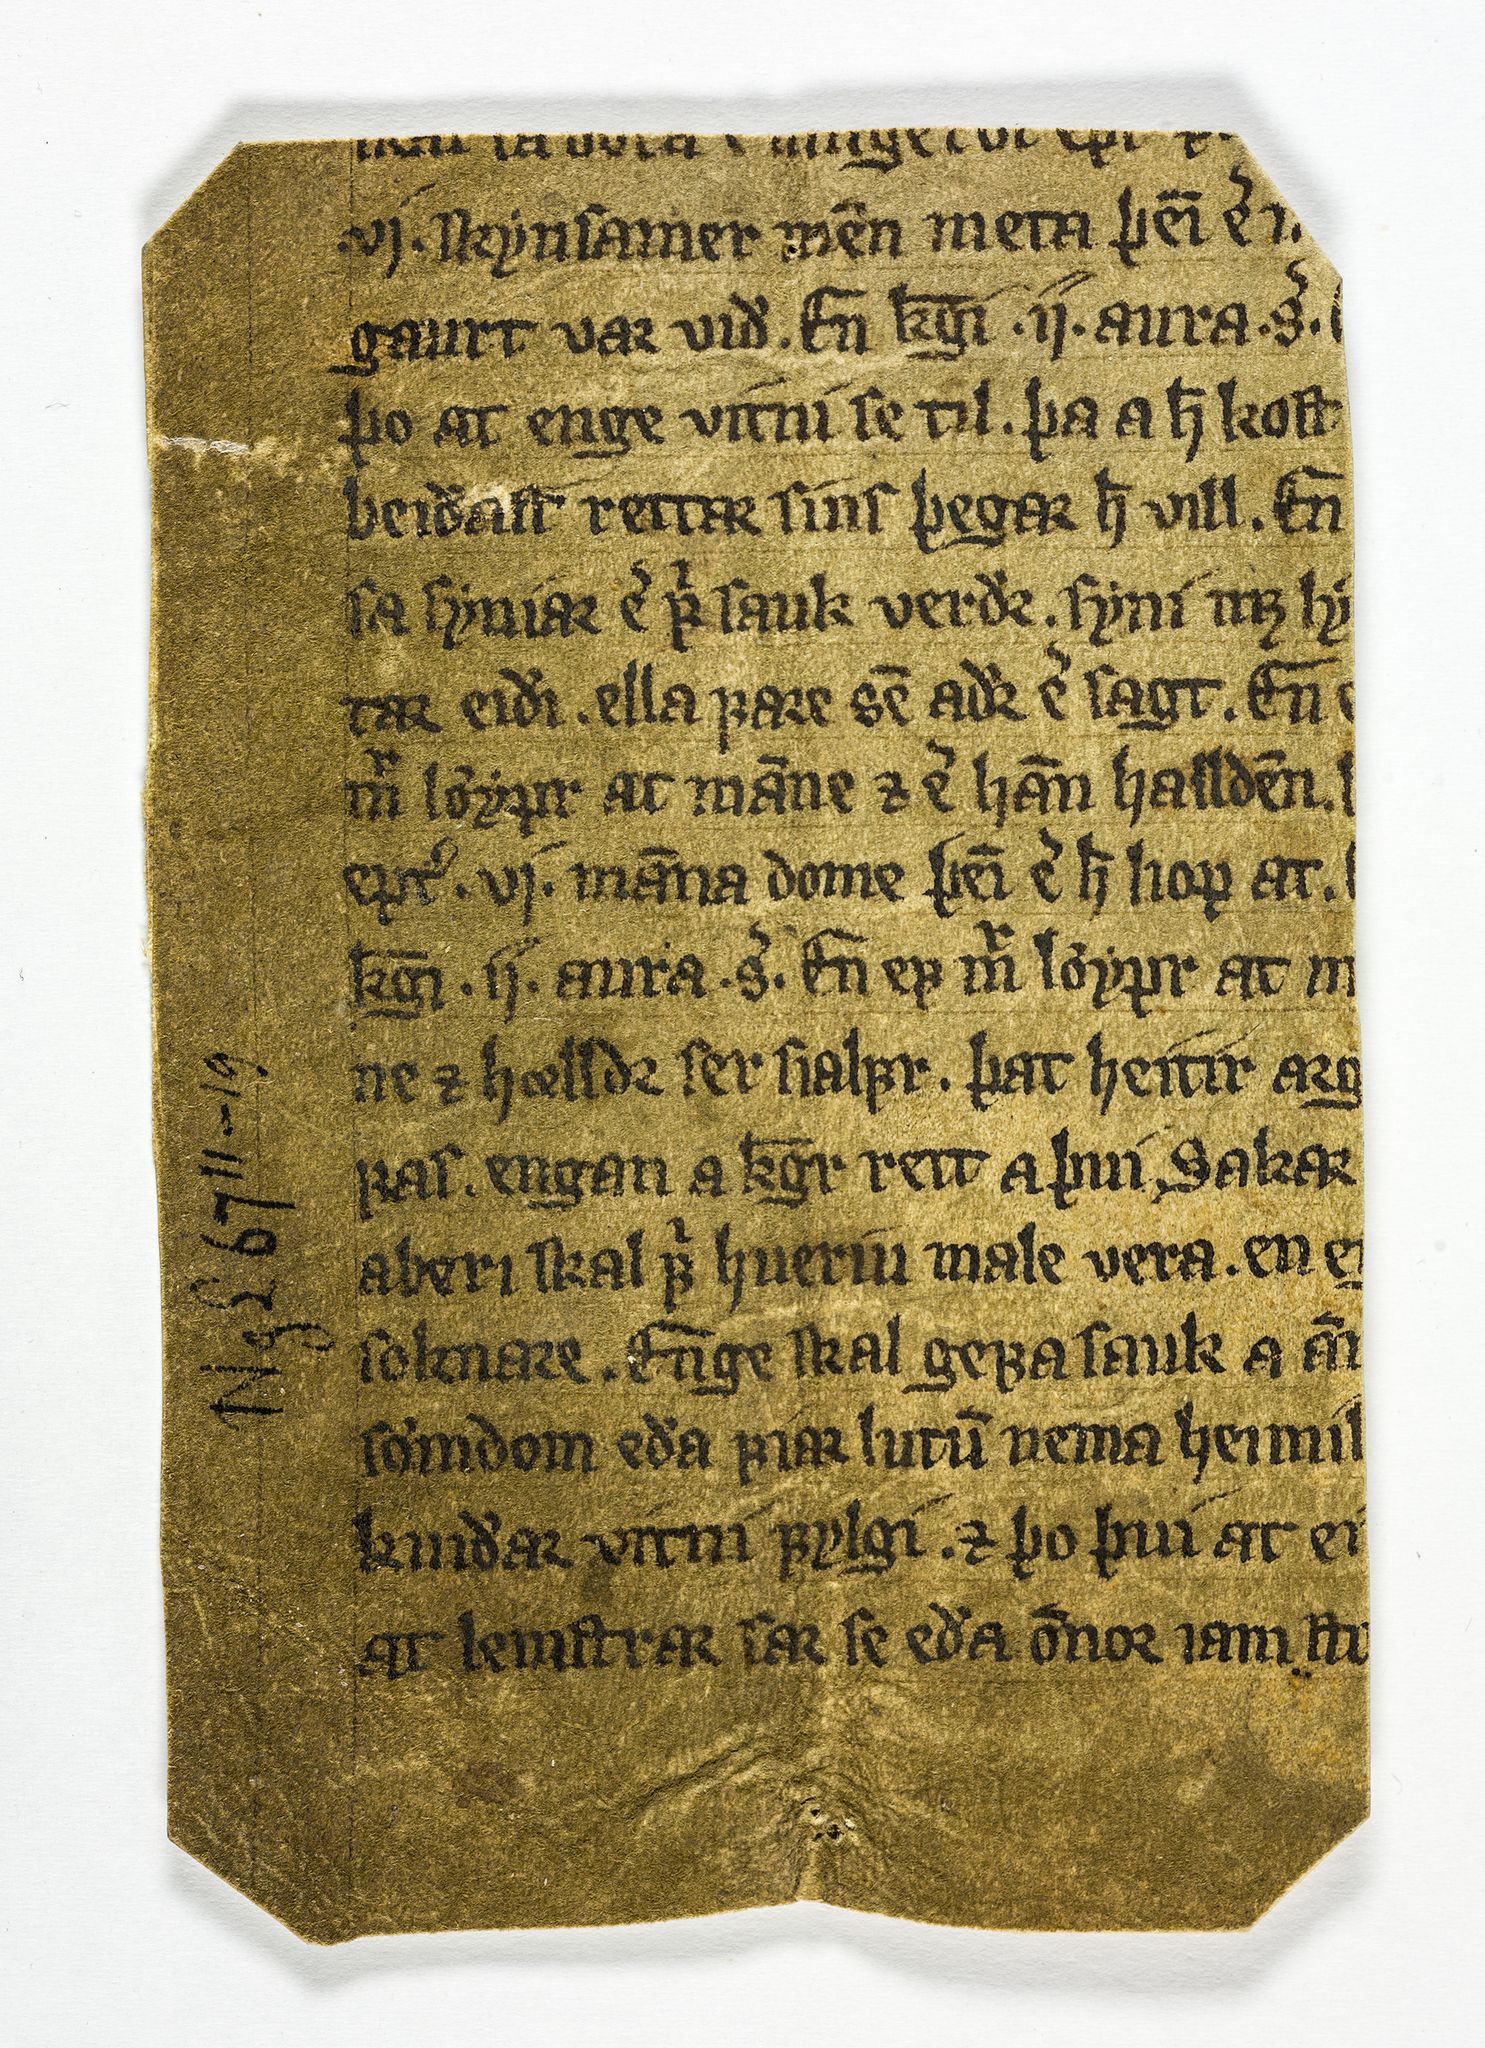 .vj. skynsamer men̄ meta þei̅ e͛
gaurt var við. En̄ kg̅i .ij. aura .s͛.
þo at enge vitni se til. þa a h̅ kost
beiðast rettar sins þegar h̅ vill. En̄
sa syniar e͛ ꝼ͛ sauk verðr. syni m; ly
tar eiði. ella ꝼare se̅ aðr e͛ sagt. En̄ e
m̅r lỏypr at man̄e ⁊ e͛ han̄ hallden̄.
ept͛. vj. man̄a dome þei̅ e͛ h̅ liop at.
kg̅i .ij. aura .s͛. En̄ eꝼ m̅r lỏypr at m
ne ⁊ hꜵlldr ser sialꝼr. þat heitir arg
ꝼas. engan a kg̅r rett a þui. Sakar
aberi skal ꝼ͛ hueriu male vera. en ei
soknare. En̄ge skal geꝼa sauk a an̄
sỏmdom eða ꝼiar lutu̅ nema heimil
kuiðar vitni ꝼylgi. ⁊ þo þui at ei
at lemstrar sar se eða ỏnor iam st
NgL 67 11-19